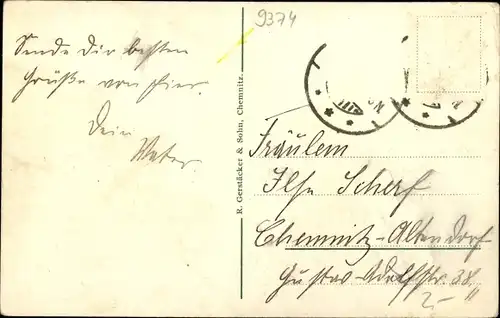 9374
Sende Dir besten
Grüße von hier.
Dein
Vater.
R. Gerstäcker & Sohn, Chemnitz.
Fräulein
Ilse Scherf
Chemnitz-Altendorf
Gustav-Adolfstr. 38 II